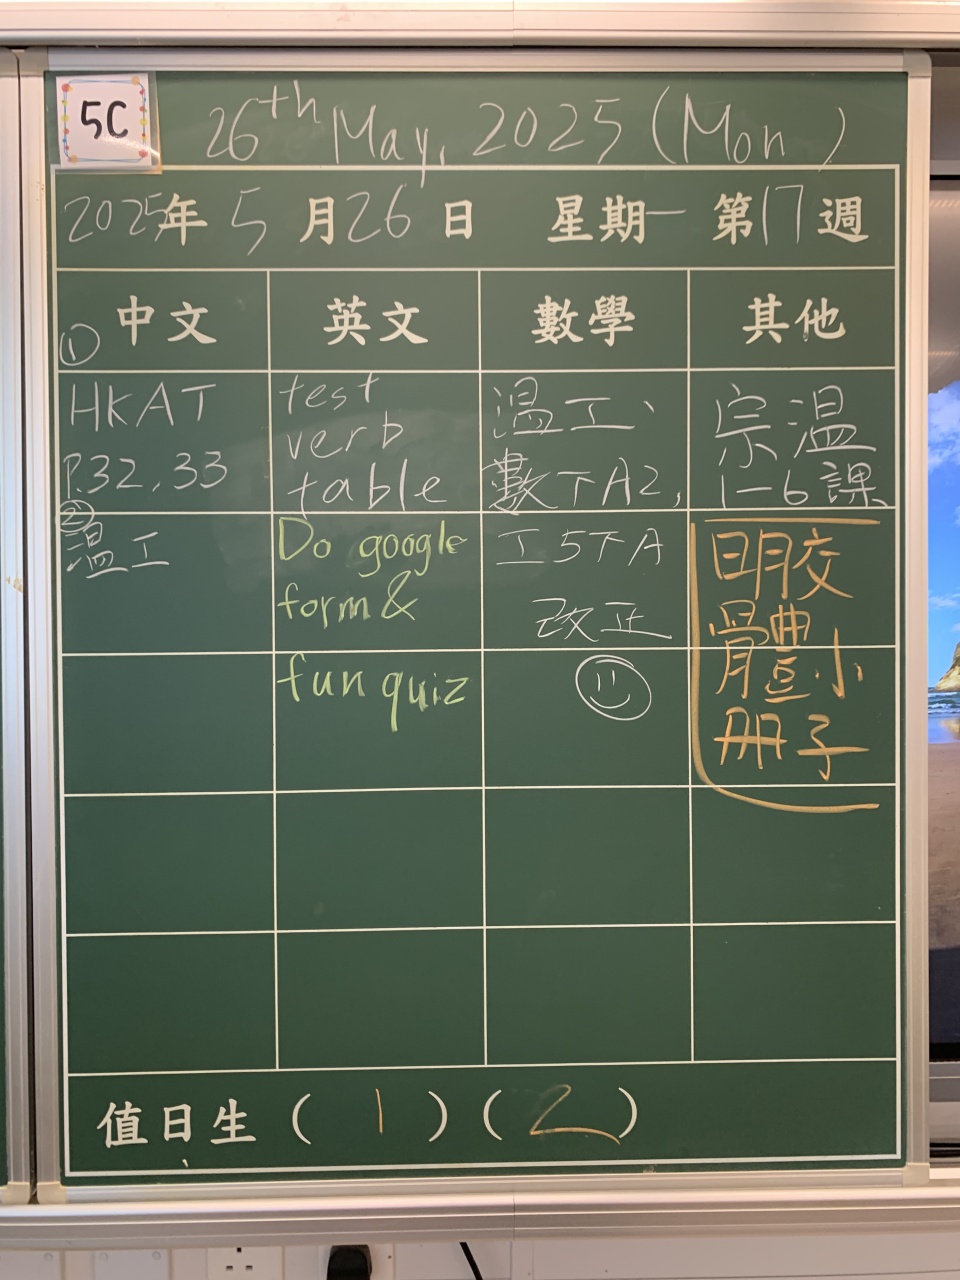 5C
26th May, 2025 (Mon)
2025年 5 月 26 日 星期一 第17週
中文 英文 數學 其他
①
HKAT
P.32, 33
②
溫工
test
verb
table
Do google
form &
fun quiz
溫工、
數下A2,
工5下A
改正
宗溫
1-6課
明交
體小
冊子
值日生 ( 1 ) ( 2 )